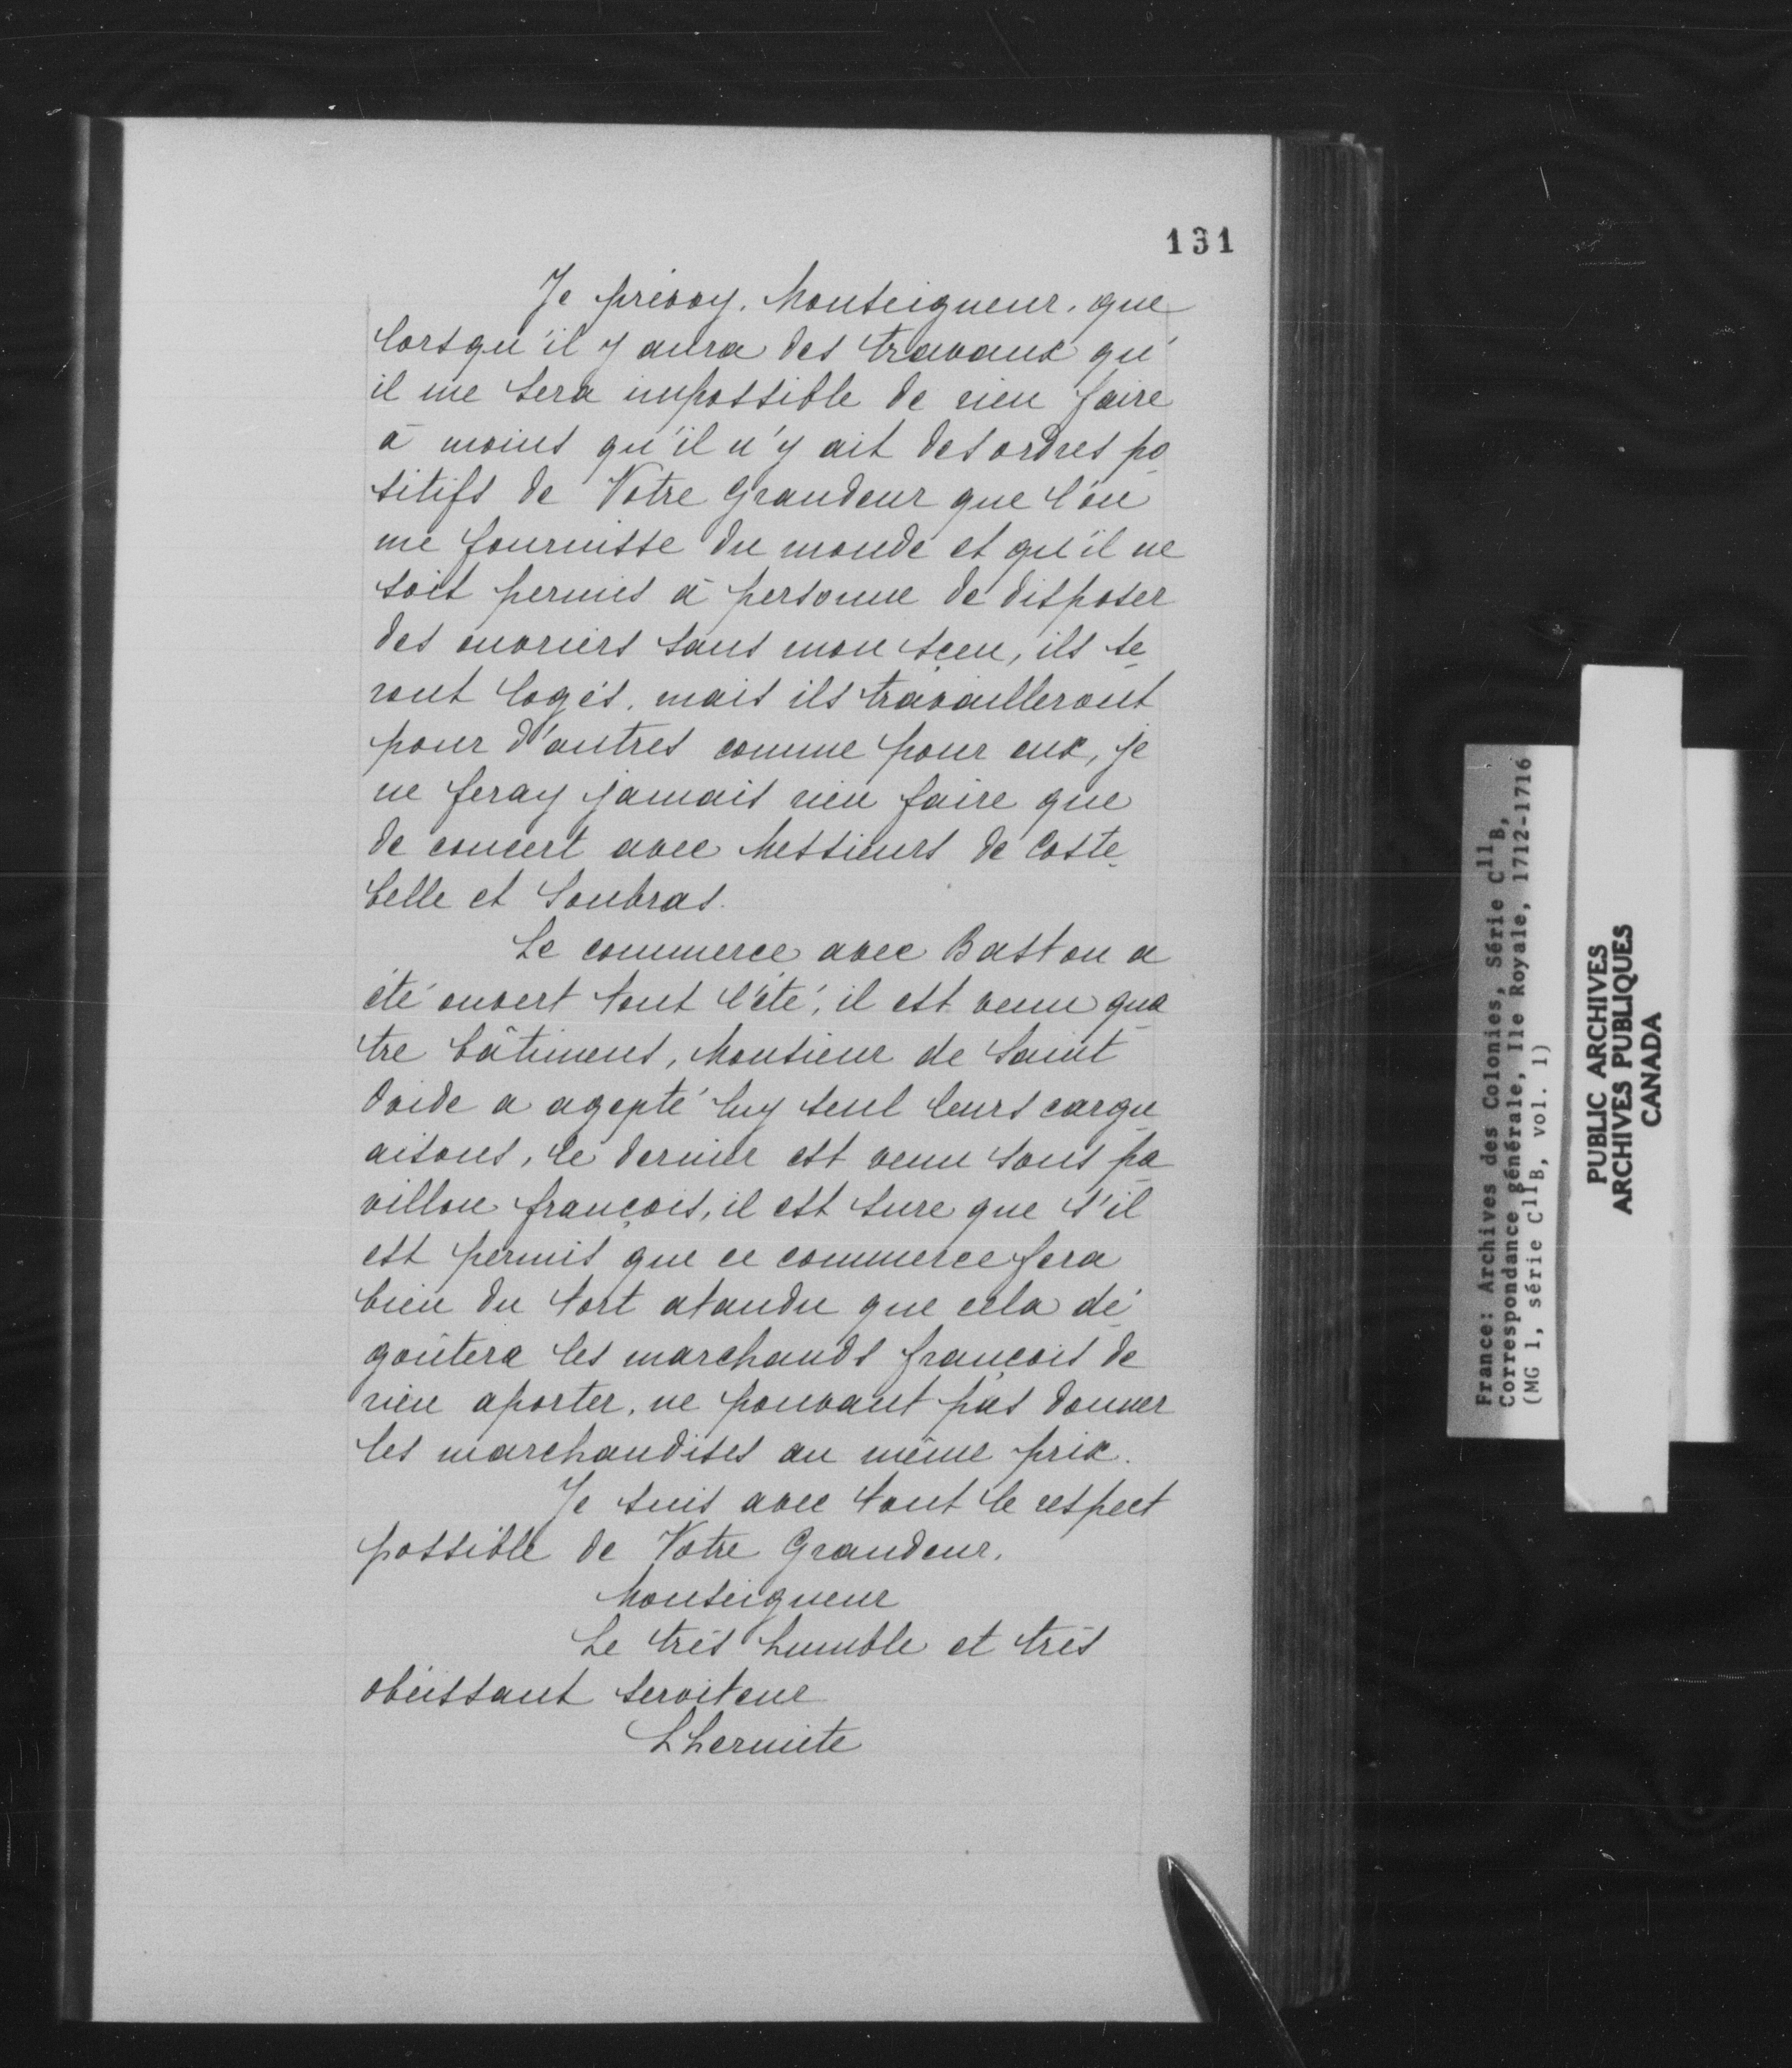 131
Je prévoy, Monseigneur, que
lorsqu'il y aura des travaux qu'
il me sera impossible de rien faire
à moins qu'il n'y ait des ordres po
sitifs de Votre Grandeur que l'on
me fournisse du monde et qu'il ne
soit permis à personne de disposer
des ouvriers sans mon sçeu, ils se
ront logés, mais ils travailleront
pour d'autres comme pour eux, je
ne feray jamais rien faire que
de concert avec Messieurs de Coste
belle et Soubras.
Le commerce avec Baston a
été ouvert tout l'été, il est venu qua
tre bâtiments, Monsieur de Saint
Ovide a agepté luy seul leurs cargu
aisons, le dernier est venu sous pa
villon françois, il est sure que s'il
est permis que ce commerce fera
bien du tort atandu que cela dé
goûtera les marchands françois de
rien aporter, ne pouvant pas donner
les marchandises au même prix.
Je suis avec tout le respect
possible de Votre Grandeur,
Monseigneur
Le très humble et très
obéissant serviteur
Lhermite
France: Archives des Colonies, Série C11B,
Correspondance générale, Ile Royale, 1712-1716
(MG 1, série C11B, vol. 1)
PUBLIC ARCHIVES
ARCHIVES PUBLIQUES
CANADA